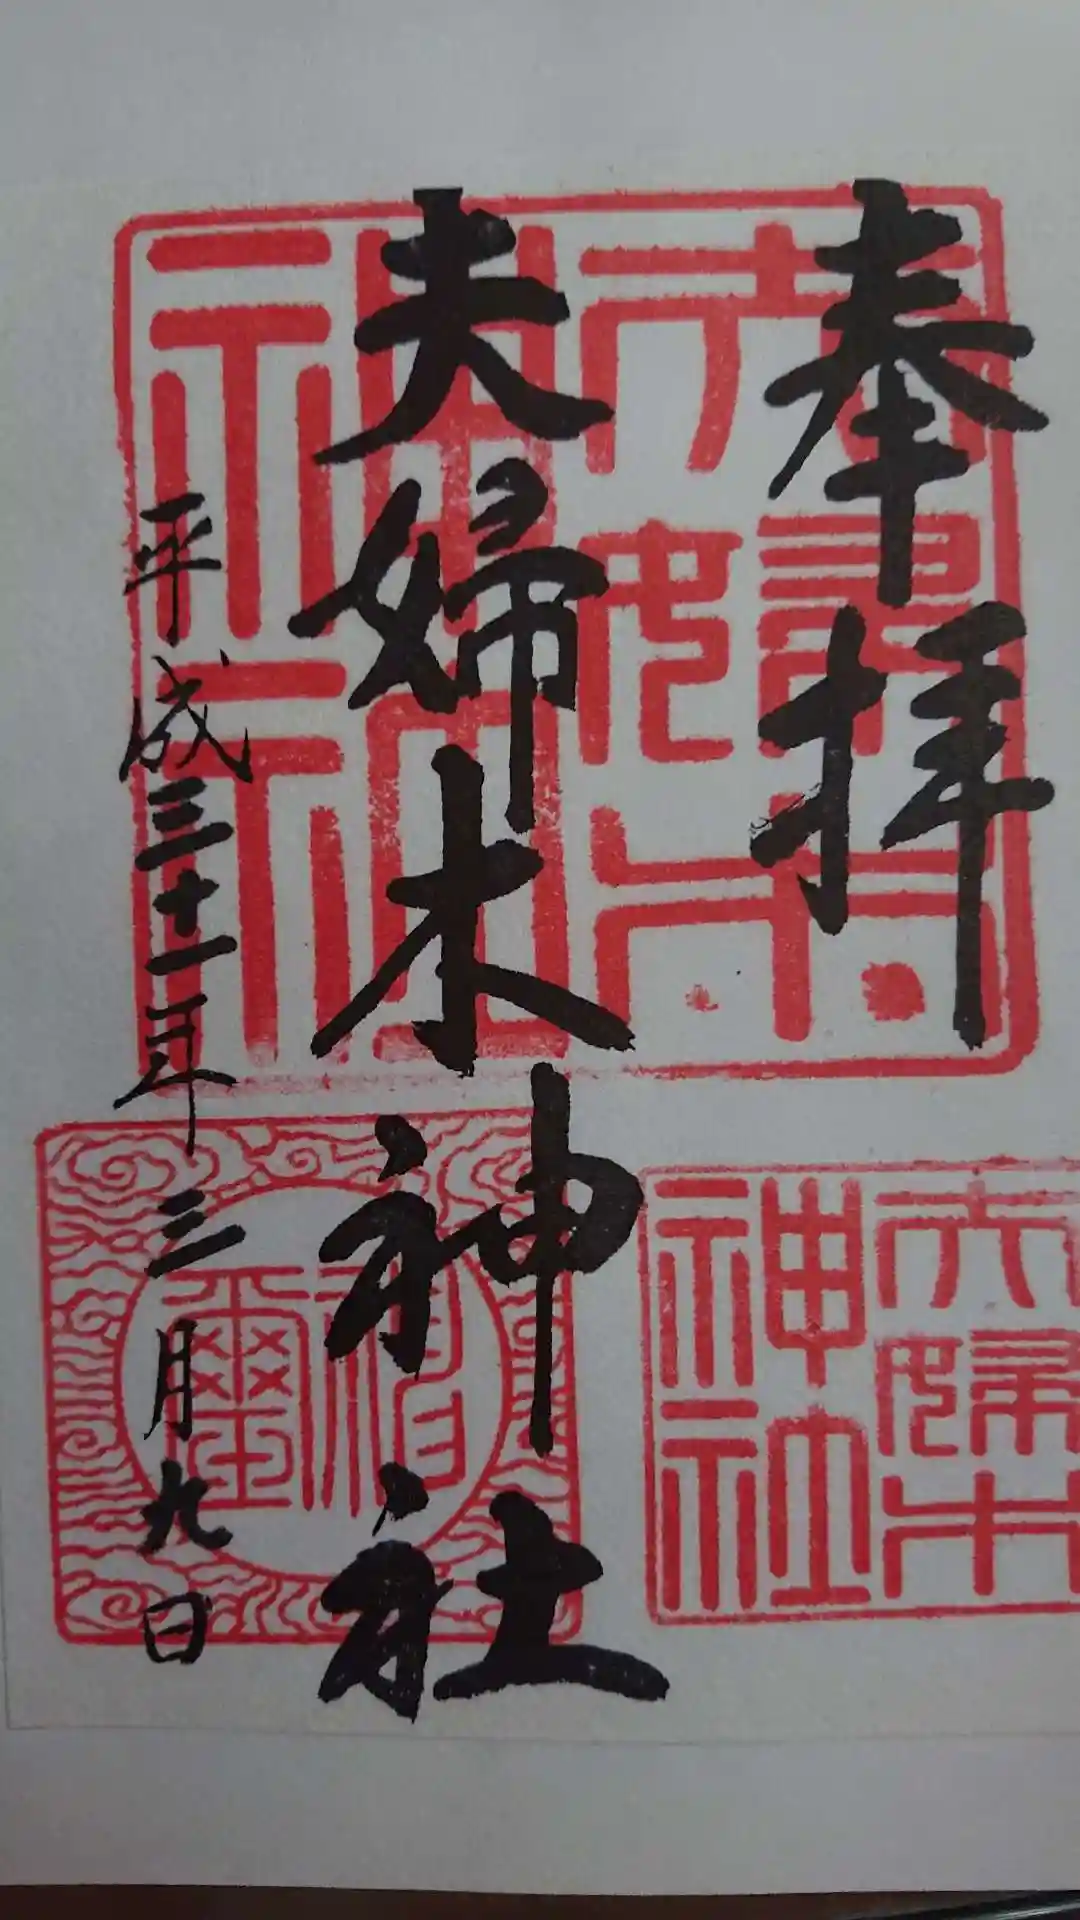 奉拝
夫婦木神社
平成三十一年三月九日
夫婦木
神社
夫婦木
神社